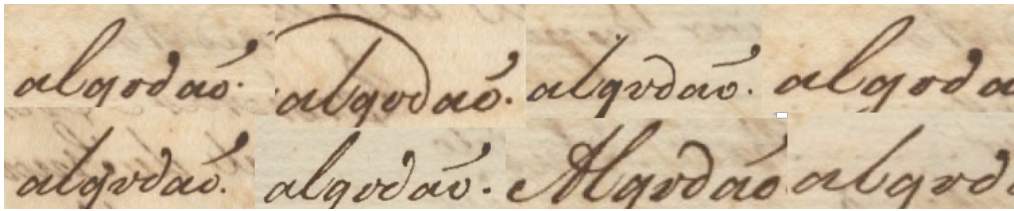 algodaó. algodaó. algodaó. algoda
algodaó. algodaó. Algodaó algod